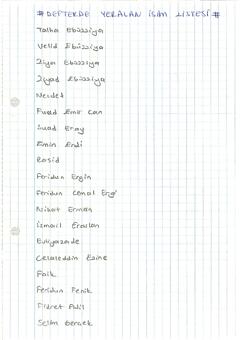 # DEFTERDE YERALAN İSİM LİSTESİ #
Talha Ebüzziya
Velid Ebüzziya
Ziya Ebüzziya
Ziyad Ebüzziya
Necdet
Fuad Emir Can
Suad Eray
Emin Erdi
Raşid
Feridun Ergin
Feridun Cemal Ergi
Nihat Erman
İsmail Eraslan
Evliyazade
Celaleddin Ezine
Faik
Feridun Fenik
Fikret Adil
Selim Gerçek